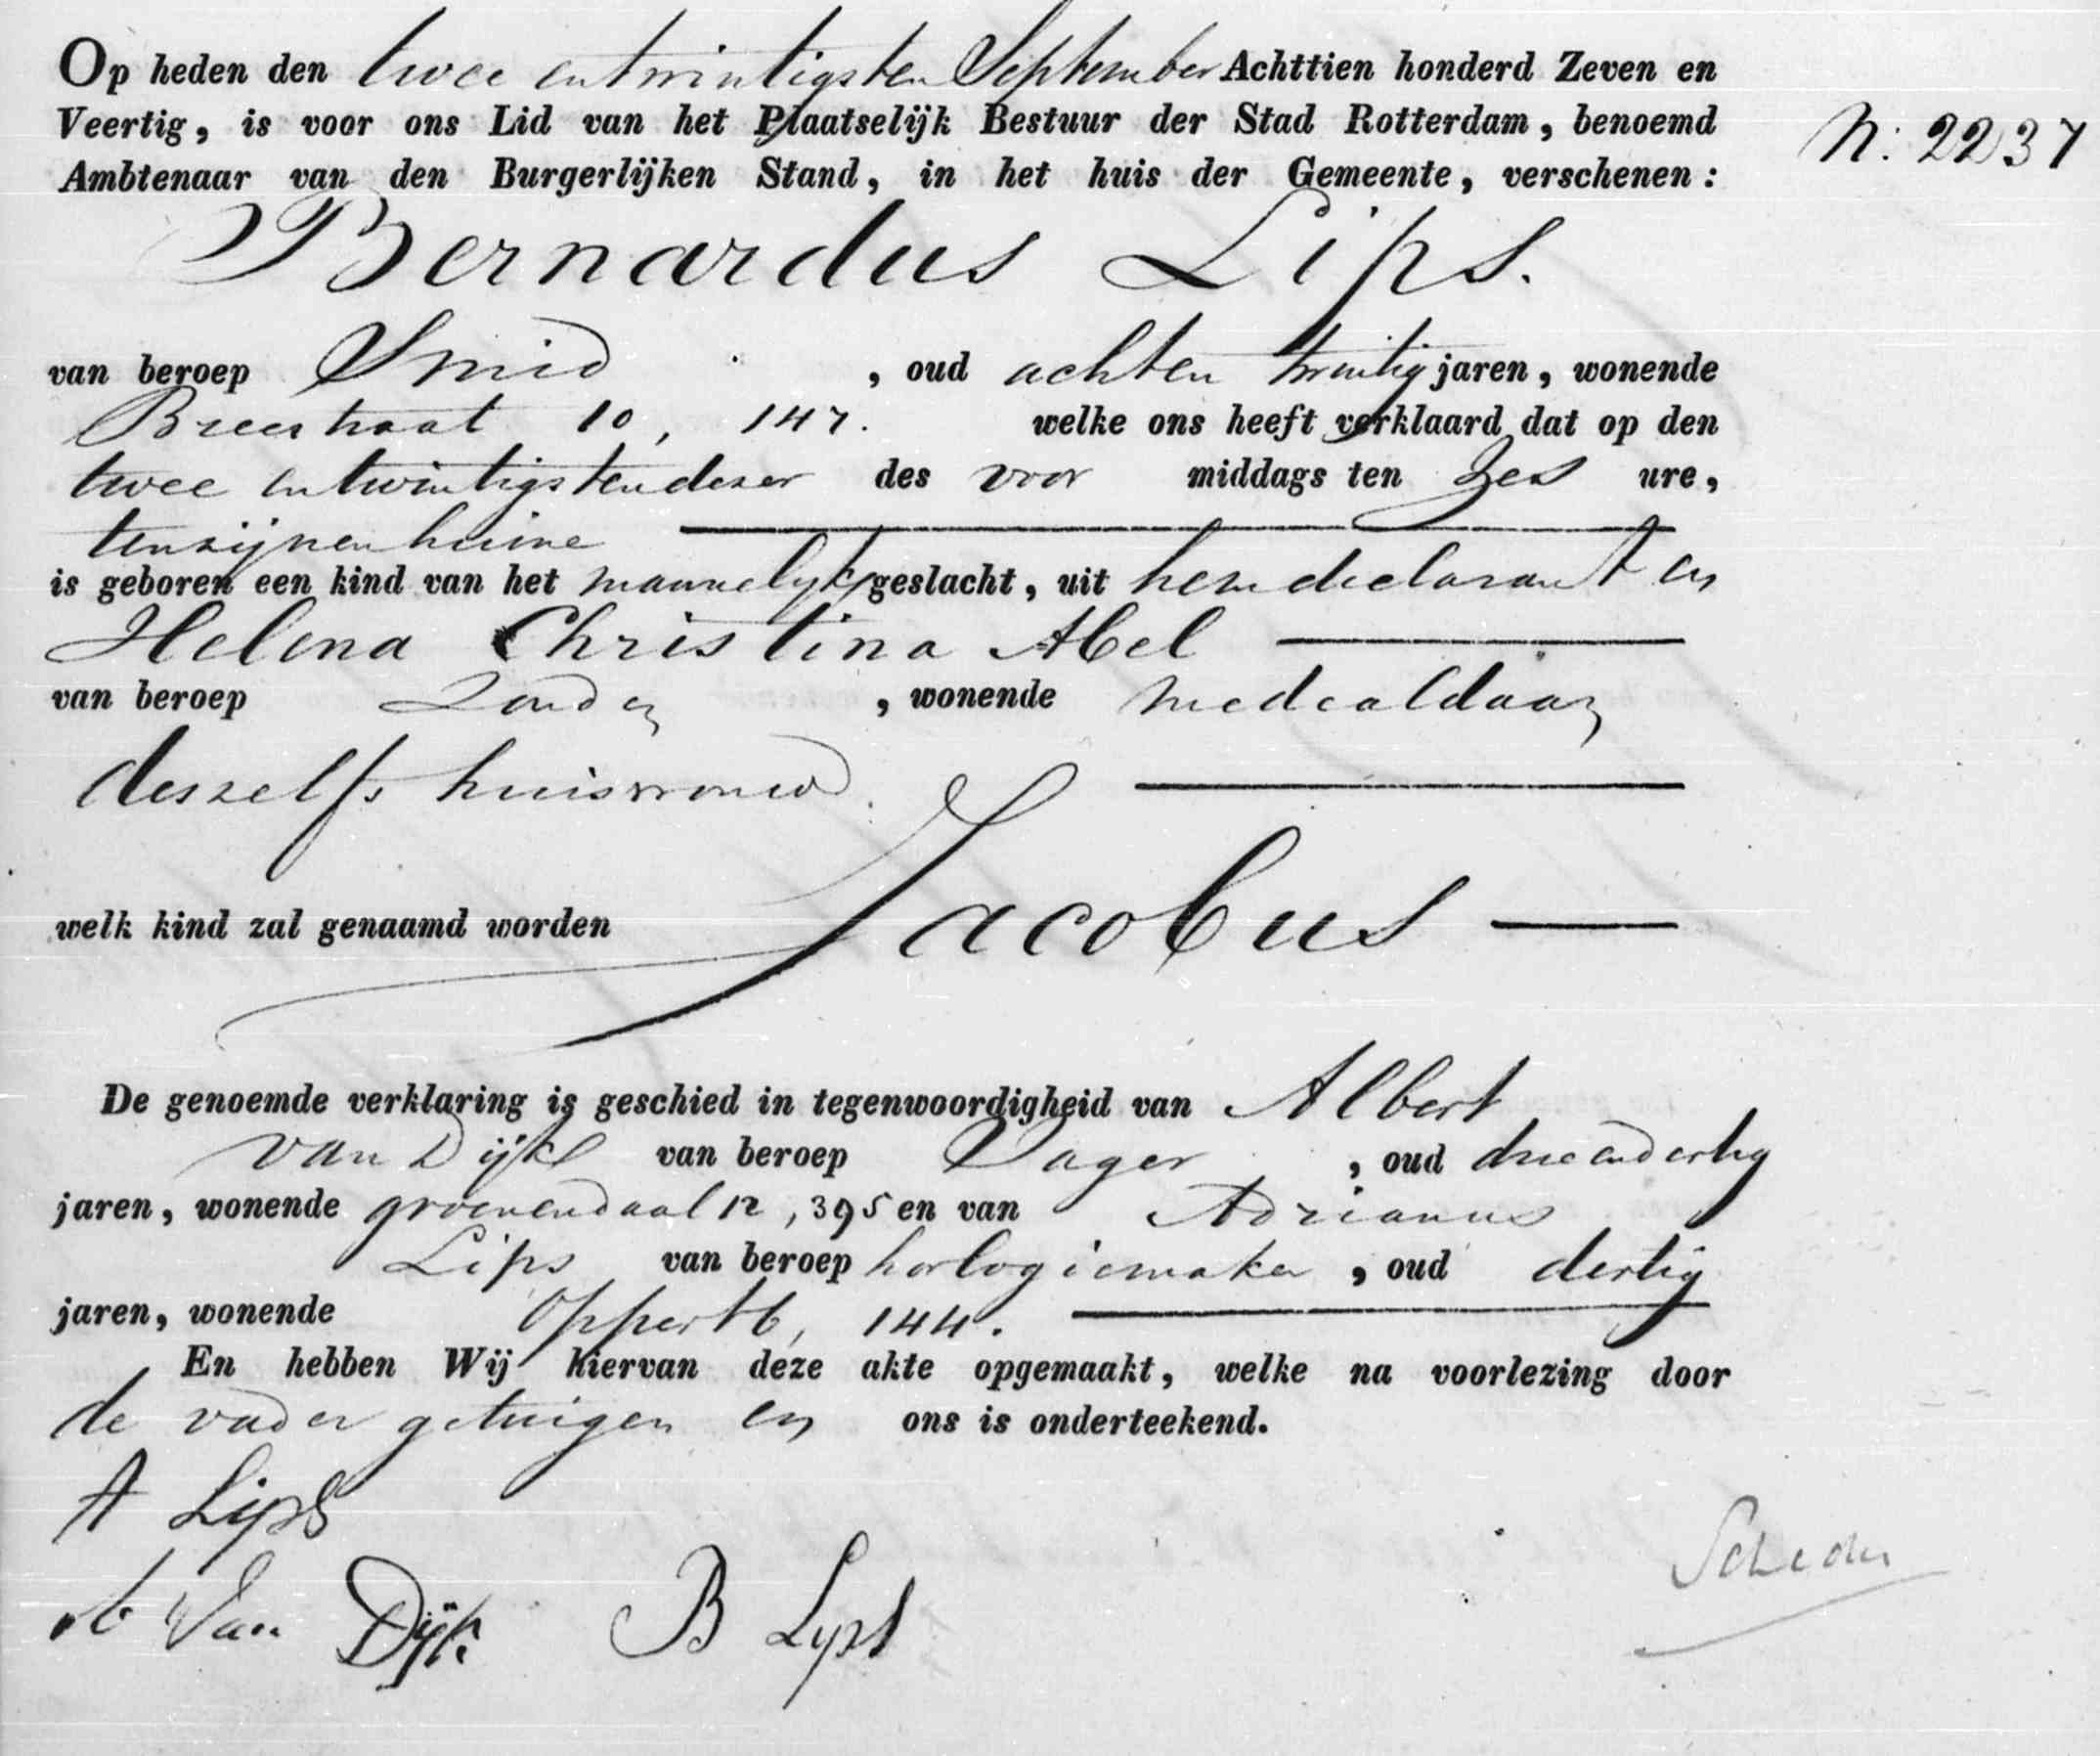 Op heden den twee en twintigsten September Achttien honderd Zeven en
Veertig, is voor ons Lid van het Plaatselijk Bestuur der Stad Rotterdam, benoemd
N: 2237
Ambtenaar van den Burgerlijken Stand, in het huis der Gemeente, verschenen:
Bernardus Lips.
van beroep Smid, oud achten twintig jaren, wonende
Breestraat 10, 147. welke ons heeft verklaard dat op den
twee en twintigsten deser des voor middags ten zes ure,
ten zijnen huise
is geboren een kind van het mannelijk geslacht, uit hem declarant en
Helena Christina Abel
van beroep Zonder, wonende mede aldaar
deszelfs huisvrouw.
welk kind zal genaamd worden Jacobus
De genoemde verklaring is geschied in tegenwoordigheid van Albert
van Dijk van beroep Dager, oud drie en dertig
jaren, wonende groenendaal 12, 395 en van Adrianus
Lips van beroep horlogiemaker, oud dertig
jaren, wonende Oppert 6, 144.
En hebben Wij hiervan deze akte opgemaakt, welke na voorlezing door
de vader getuigen en ons is onderteekend.
A Lips
A Van Dijk B Lips